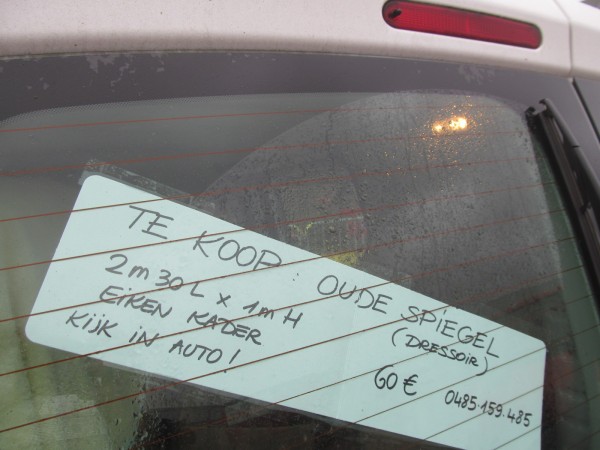 TE KOOP: OUDE SPIEGEL
(DRESSOIR)
2m30L x 1mH
EIKEN KADER
KIJK IN AUTO!
60€ 0485.159.485